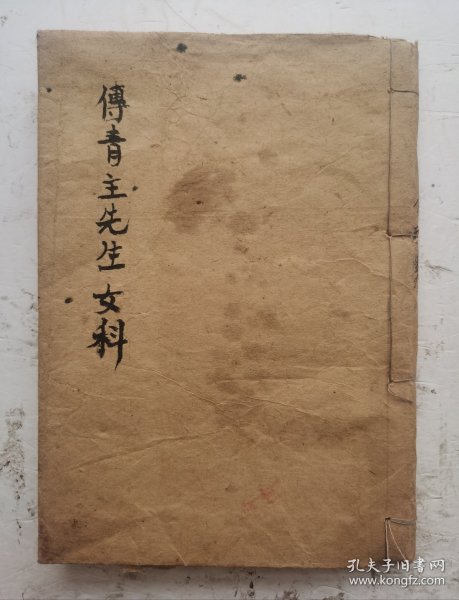 傅青主先生女科
孔夫子旧书网
www.kongfz.com